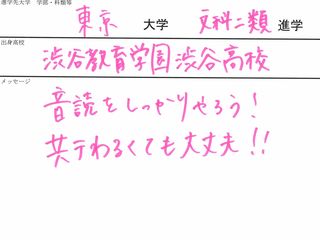 進学先大学 学部・科類等
東京 大学 文科二類 進学
出身高校
渋谷教育学園渋谷高校
メッセージ
音読をしっかりやろう!
共テわるくても大丈夫!!